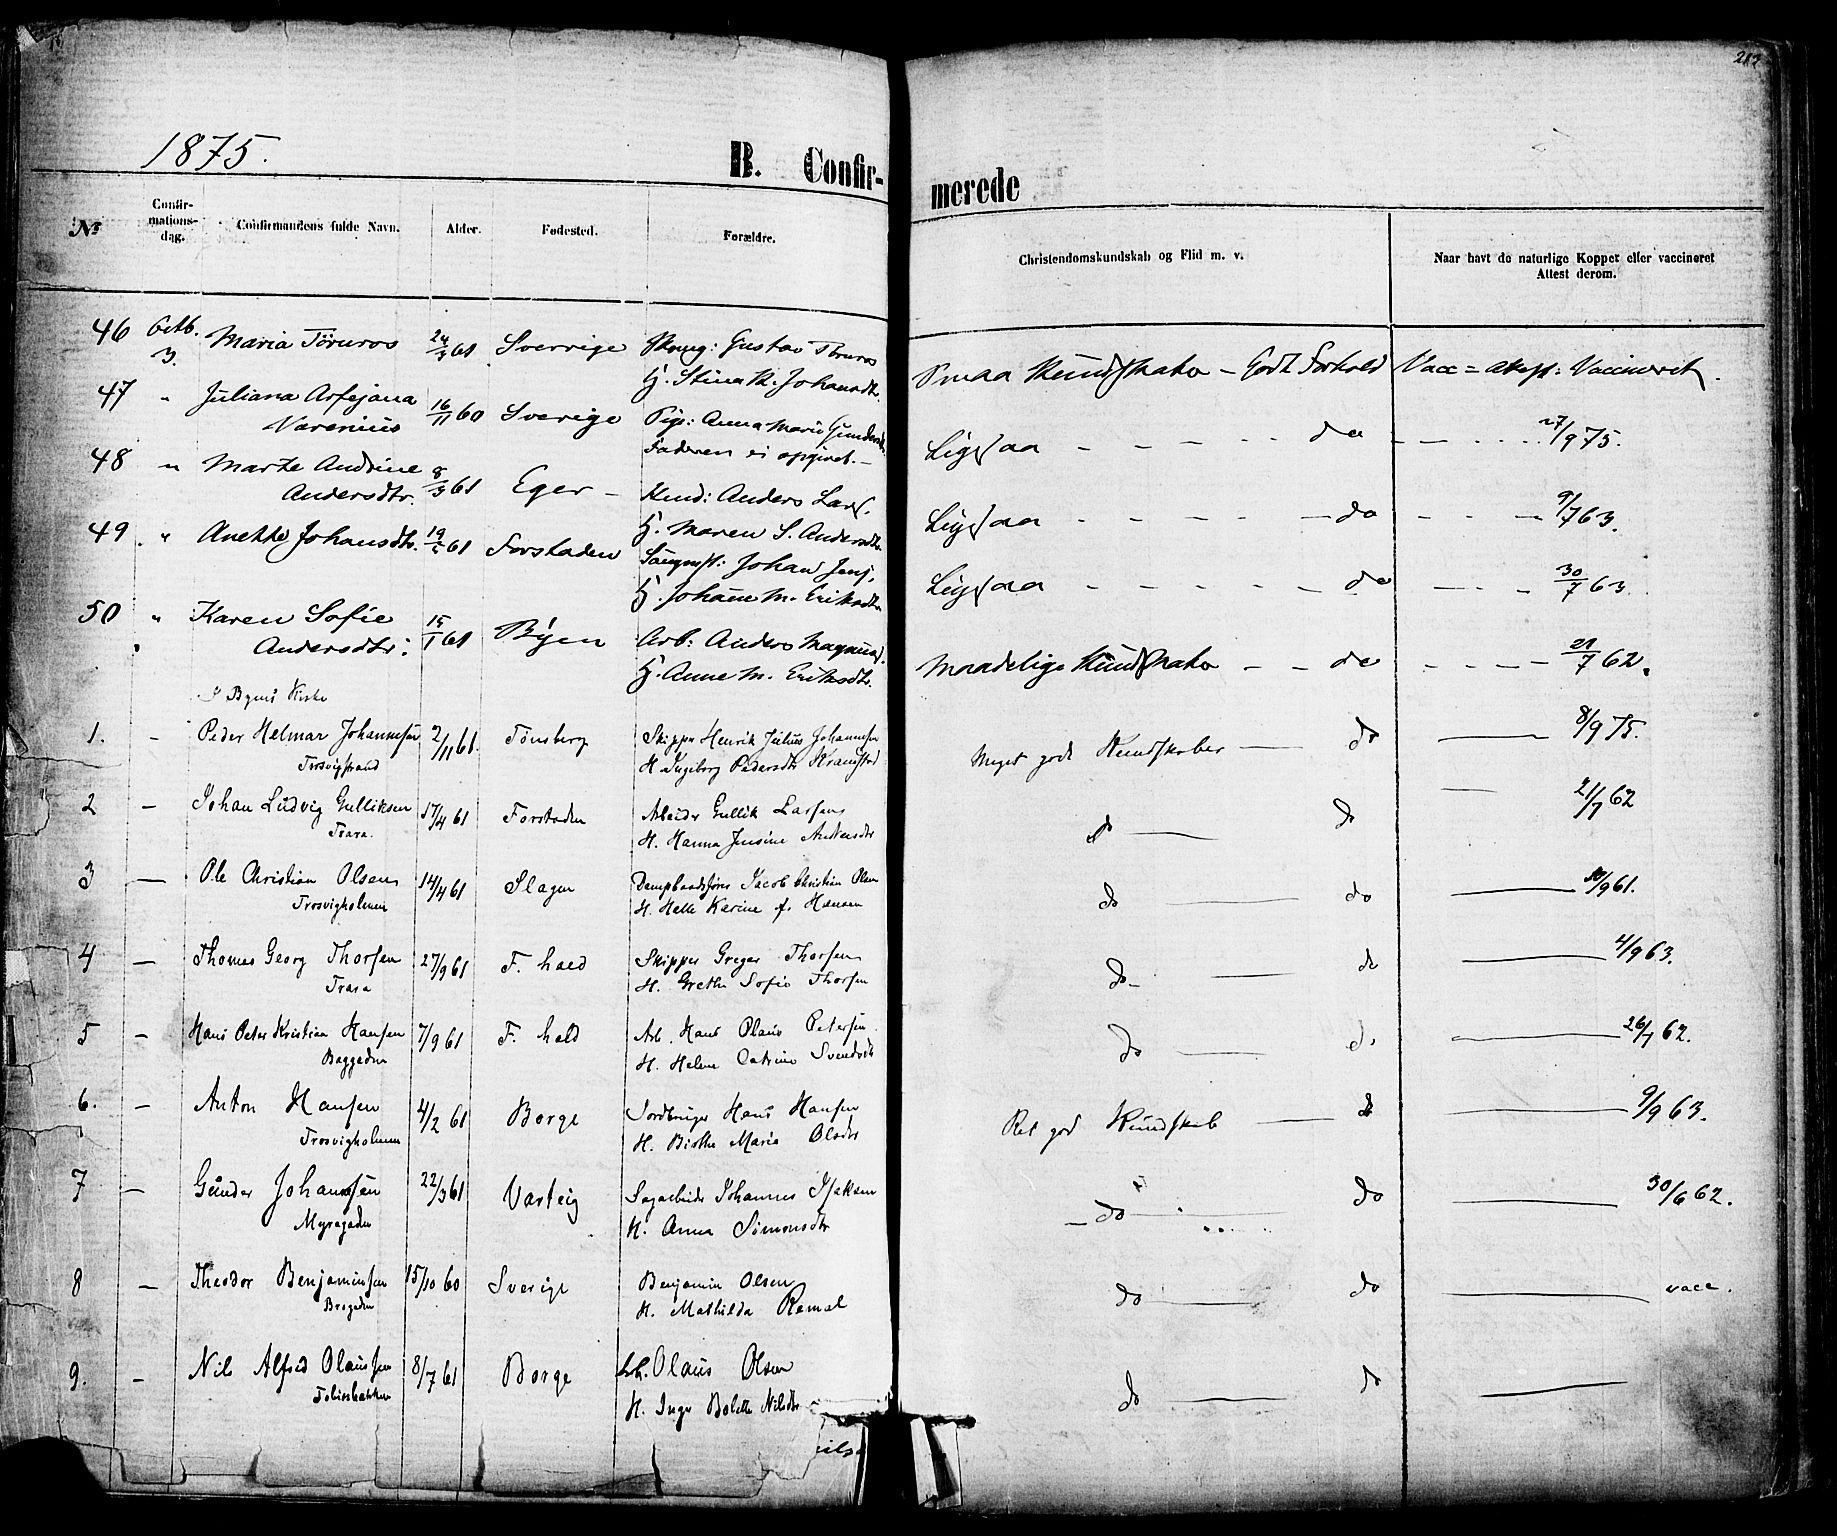 212
1875.
B. Confir-
merede
No
Confir-
mations-
dag.
Confirmandens fulde Navn.
Alder.
Fødested.
Forældre.
Christendomskundskab og Flid m. v.
Naar havt de naturlige Kopper eller vaccineret
Attest derom.
46 Octb. 3. Maria Töruros 24/3 61 Sverrige Gustav Töruros
H. Stina K. Johansdtr.
Smaa Kundskaber - Godt Forhold Vacc = Vaccineret.
47 " Juliana Arfejana 16/11 60 Sverige Pige: Anna Marie Gundersdtr.
Varenius Faderen ei opgivet. -
Ligesaa - - - - do - - - 27/9 75.
48 " Marte Andrine 8/3 61 Eger - Anders Lars.
Andersdtr. H. Maren S. Andersdtr.
Ligesaa - - - - do - - - 9/7 63.
49 " Anette Johansdtr. 61 Forstaden Johan Jens.
H. Johanne M. Eriksdtr.
Ligesaa - - - - do - - - 30/7 63.
50 " Karen Sofie 15/1 61 Byen Arb: Anders Magnus.
Andersdtr. H. Anne M. Eriksdtr.
Maadelige Kundskaber - - do - - - 21/7 62.
I Byens Kirke
1. - Peder Helmar Johannesen 2/11 61. Tønsberg Skipper Henrik Julius Johannesen
Trosvigstrand H. Ingeborg Pedersdtr
Meget gode Kundskaber — do — 8/9 75.
2 - Johan Ludvig Gulliksen 17/4 61 Forstaden Arbeider Gullik Larsen
Trara. H. Hanna Jensine Andersdtr
do — do — 21/7 62
3 - Ole Christian Olsen 14/4 61 Slagen Jacob Christian Olsen
Trosvigholmen H. Helle Karine f. Hansen
do — do — 10/9 61.
4 - Thomas Georg Thorsen 27/9 61 F. hald Skipper Greger Thorsen
Trara H. Grethe Sofie Thorsen
do - — do — 4/9 63.
5 - Hans Peter Kristian Hansen 7/9 61 F. hald Arb. Hans Olaus Petersen
Baggaden H. Helene Catrine Svendsdtr
do — do — 26/7 62.
6. - Anton Hansen 4/2 61 Borge Jordbruger Hans Hansen
Trosvigholmen H. Birthe Maria Olsdtr
Ret god Kundskab — do — 9/9 63.
7 - Gunder Johannesen 22/3 61 Varteig Sagarbeider Johannes Isaksen
Myragaden H. Anna Simonsdtr
do — do — 30/6 62.
8 - Theodor Benjaminsen 15/10 60 Sverige Benjamin Olsen
Brogaden H. Mathilda Ramal
do — do — vacc.
9. - Nils Alfred Olaussen 8/7 61 Borge Arb. Olaus Olsen
Tobiesbakken H. Inger Bolette Nilsdtr
do — do —